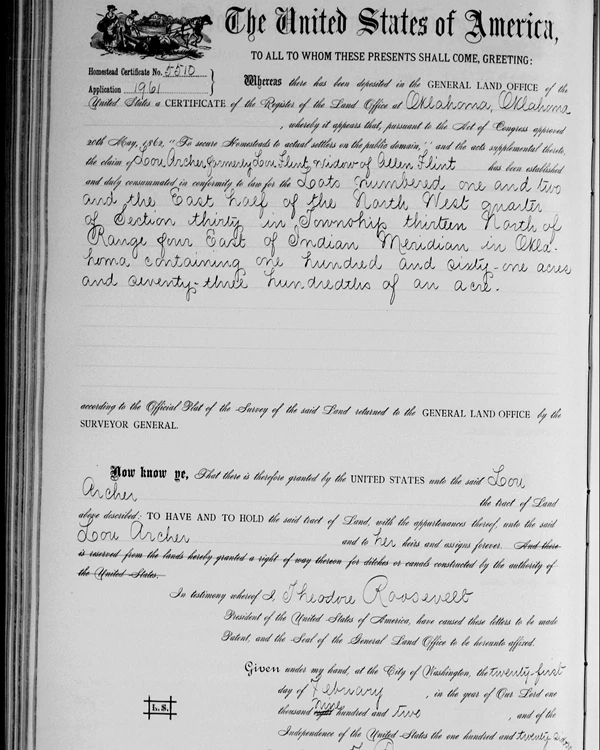 The United States of America,
TO ALL TO WHOM THESE PRESENTS SHALL COME, GREETING:
Homestead Certificate No. 5510
Application 1961
Whereas there has been deposited in the GENERAL LAND OFFICE of the
United States a CERTIFICATE of the Register of the Land Office at Oklahoma, Oklahoma
, whereby it appears that, pursuant to the Act of Congress approved
20th May, 1862, "To secure Homesteads to actual settlers on the public domain," and the acts supplemental thereto,
the claim of Lou Archer, formerly Lou Flint, widow of Allen Flint has been established
and duly consummated, in conformity to law for the Lots numbered one and two
and the East half of the North West quarter
of Section thirty in Township thirteen North of
Range four East of Indian Meridian in Okla-
homa containing one hundred and sixty-one acres
and seventy-three hundredths of an acre.
according to the Official Plat of the Survey of the said Land returned to the GENERAL LAND OFFICE by the
SURVEYOR GENERAL.
Now know ye, That there is therefore granted by the UNITED STATES unto the said Lou
Archer the tract of Land
above described; TO HAVE AND TO HOLD the said tract of Land, with the appurtenances thereof, unto the said
Lou Archer and to her heirs and assigns forever. And there
is reserved from the lands hereby granted a right of way thereon for ditches or canals constructed by the authority of
the United States.
In testimony whereof I, Theodore Roosevelt
President of the United States of America, have caused these letters to be made
Patent, and the Seal of the General Land Office to be hereunto affixed.
Given under my hand, at the City of Washington, the twenty-first
day of February , in the year of Our Lord one
thousand nine hundred and two , and of the
L.S.
Independence of the United States the one hundred and twenty